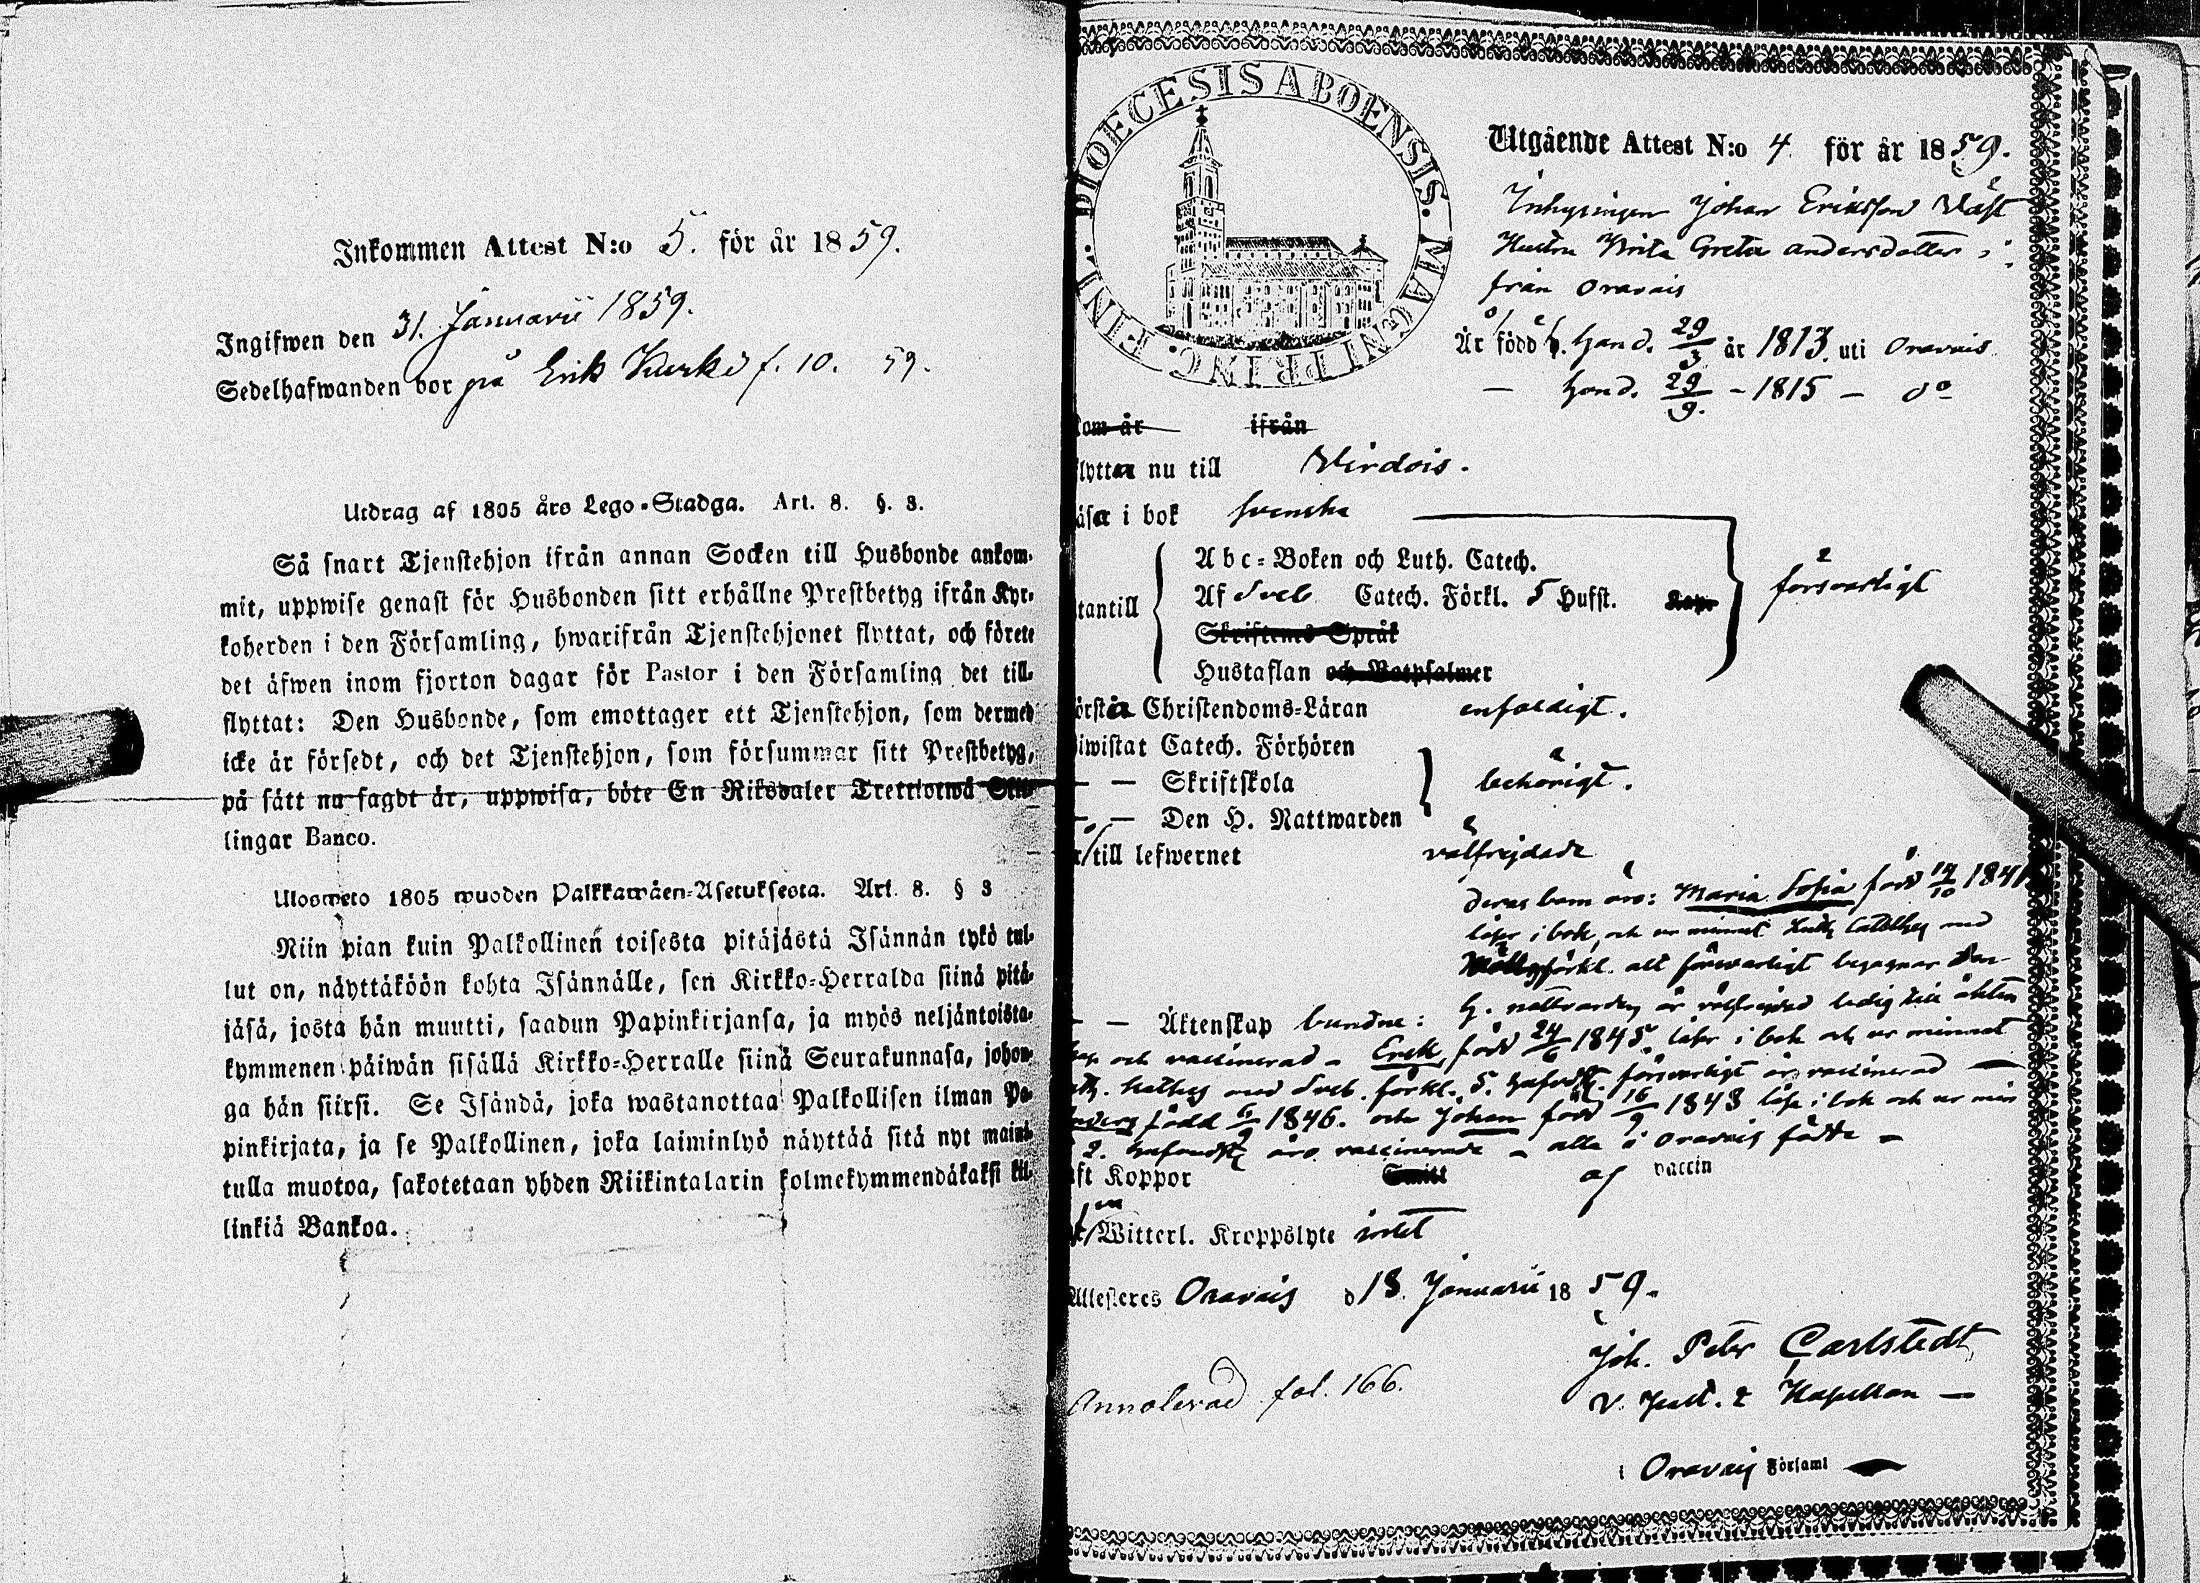 Inkommen Attest N:o 5. för år 1859.
Ingifwen den 31. Januarii 1859.
Sedelhafwanden bor på Erik f. 10. 59.
Utdrag af 1805 års Lego-Stadga. Art. 8. §. 3.
Så snart Tjenstehjon ifrån annan Socken till Husbonde ankom-
mit, uppwise genast för Husbonden sitt erhållne Prestbetyg ifrån Kyr-
koherden i den Församling, hwarifrån Tjenstehjonet flyttat, och förete
det äfwen inom fjorton dagar för Pastor i den Församling det till-
flyttat: Den Husbonde, som emottager ett Tjenstehjon, som dermed
icke är försedt, och det Tjenstehjon, som försummar sitt Prestbetyg,
på sätt nu sagdt är, uppwisa, böte En Riksdaler Trettiotwå Skil-
lingar Banco.
Ulosweto 1805 wuoden Palkkawäen-Asetuksesta. Art. 8. § 3
Niin pian kuin Palkollinen toisesta pitäjästä Isännän tykö tul-
lut on, näyttäköön kohta Isännälle, sen Kirkko-Herralda siinä pitä-
jäsä, josta hän muutti, saadun Papinkirjansa, ja myös neljäntoista-
kymmenen päiwän sisällä Kirkko-Herralle siinä Seurakunnasa, johon-
ga hän siirsi. Se Isändä, joka wastanottaa Palkollisen ilman Pa-
pinkirjata, ja se Palkollinen, joka laiminlyö näyttää sitä nyt maini-
tulla muotoa, sakotetaan yhden Riikintalarin kolmekymmendäkaksi kil-
linkiä Bankoa.
DIOECESIS ABOENSIS. MAGNI PRINC. FINL.
Utgående Attest N:o 4 för år 1859.
Inhysingen Johan Eriksson Wäst
Hustru Brita Greta Andersdotter
från Oravais
Är född Han d. 29/3 år 1813. uti Oravais
— Hon d. 29/9. - 1815 — do
kom år ifrån
flyttar nu till Virdois.
läser i bok svenska
Abc-Boken och Luth. Catech.
utantill Af Sveb Catech. Förkl. 5 Hufst. försvarligt
Skriftenes Språk
Hustaflan och Botpsalmer
Förstår Christendoms-Läran enfaldigt.
Biwistat Catech. Förhören
— — Skriftskola behörigt.
— — Den H. Nattwarden
är till lefwernet välfrejdade
deras barn äro: Maria Sofia född 14/10 1841
läser i bok, och ur minnet Luth Cateches med
förkl. allt försvarligt begagnar den
H. nattvarden är välfrejdad ledig till äkten
— — Äktenskap bundne:
skap och vaccinerad - Erik, född 24/6 1845. läser i bok och ur minnet
Luth. Cateches med Sveb. förkl. 5. hufvudst. försvarligt är vaccinerad —
Anders född 6/9 1846. och Johan född 16/9 1843 läser i bok och ur min
2. hufvudst äro vaccinerade - alla i Oravais födde -
haft Koppor Smitt af vaccin
Witterl. Kroppslyte intet
Attesteres Oravais d 18. Januarii 1859.
Joh. Peter Carlstedt
V. Past. & Kapellan —
Annoterad fol. 166.
i Oravais Församl